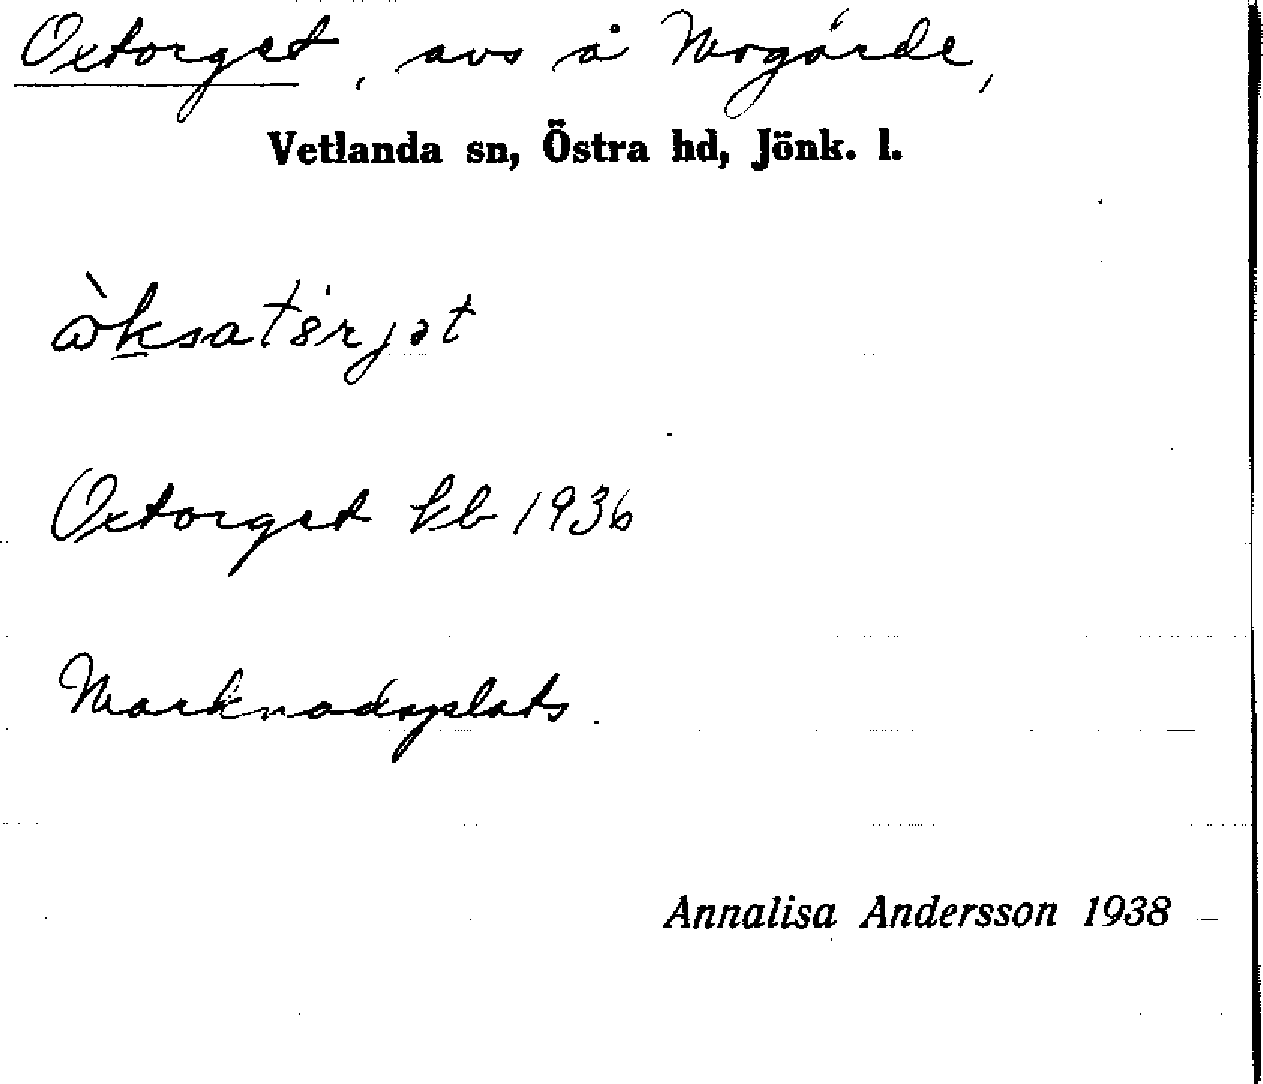 Oxtorget, avs å Mogärde,
Vetlanda sn, Östra hd, Jönk. l.
Oxtorget kb 1936
Marknadsplats.
Annalisa Andersson 1938